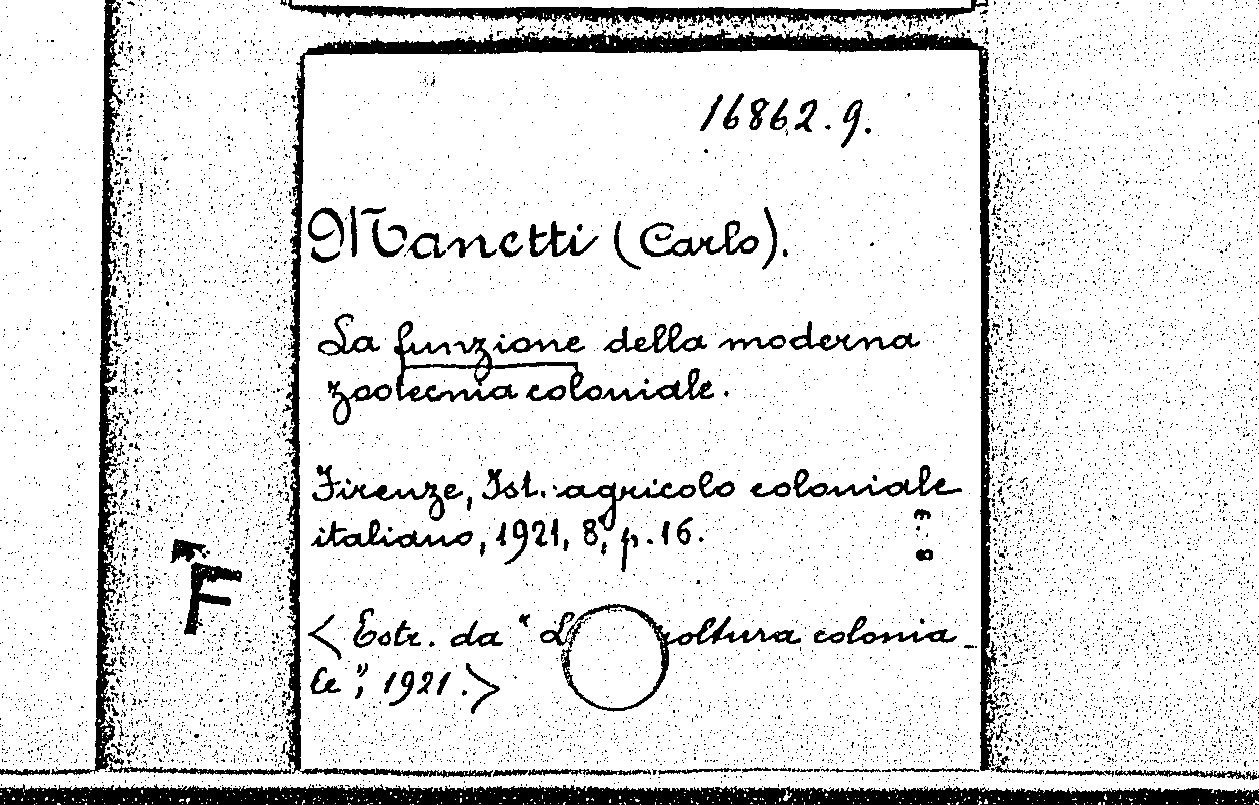 16862.9.
Manetti (Carlo).
La funzione della moderna
zootecnia coloniale.
Firenze, Ist. agricolo coloniale
italiano, 1921, 8°, p. 16.
F
< Estr. da " coltura colonia_
le", 1921.>